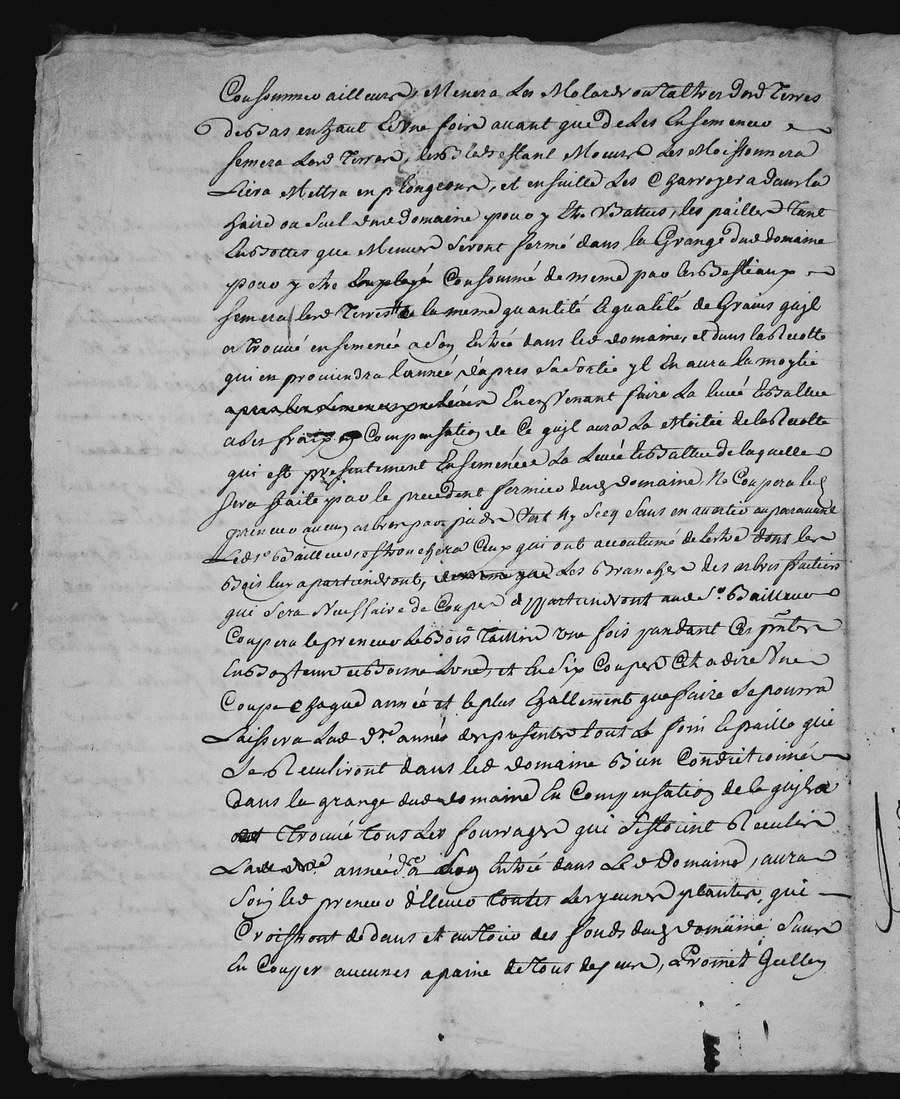 Consommer ailleurs, Menera Les Molards ou taltres desd Terres
de Bas en haut Et Une foire avant que de Les Ensemencer
semera Lesd Terres, les Bleds Estant Moeurs Les Moissonnera
Liera Mettra en plongeons, et ensuitte Les Charroyera dans la
haire ou Suel dud domaine pour y Etre Battus, les pailles Tant
Les Bottes que Menues Seront fermé dans la Grange dud domaine
pour y etre Employé Consommé de meme par les Bestiaux
semera lesd Terres de la meme quantité Et qualité de Grains quil
a trouvé ensemencé a Son Entrée dans led domaine, et dans la Recolte
qui en proviendra l'année d'apres Sa Sortie yl En aura la moytie
En en Venant faire La levée Et Battue
a ses fraix Compensation de Ce quil aura La Moitie de la Recolte
qui est presentement Ensemencée La Levée Et Battue de laquelle
sera faite par le precedent fermier dud domaine, No Coupera led
preneur aucun arbre par pied Vert Ny Secq Sans en avertir auparavant
Led sr Bailleur, Ebronchera Ceux qui ont accoutumé de letre dont les
Bois luy apartiendront, Les Branches des arbres fruitiers
qui Sera Necessaire de Couper appartiendront aud Sr Bailleur
Coupera le preneur Le Bois Taillis une fois pendant Ces pntes
En Bas temps et Bonne Lune, et En Six Coupes Cet a dire Une
Coupe chaque année et le plus Egallement que faire Se pourra
Laissera Lad dre année des presentes tout Le foin Et paille qui
Se Recueliront dans led domaine Bien Conditionnés
dans la grange dud domaine En Compensation de la quil a
trouvé tous Les fourrages qui S'estoient Recueillis
Lad dre année a Son Entrée dans Le d Domaine, aura
Soin led preneur d'Elever toutes Les jeunes plantes, qui
Croissront dedans et autour des fonds dud domaine Sans
En Couper aucunes a paine de tous depens, Promet Quelle